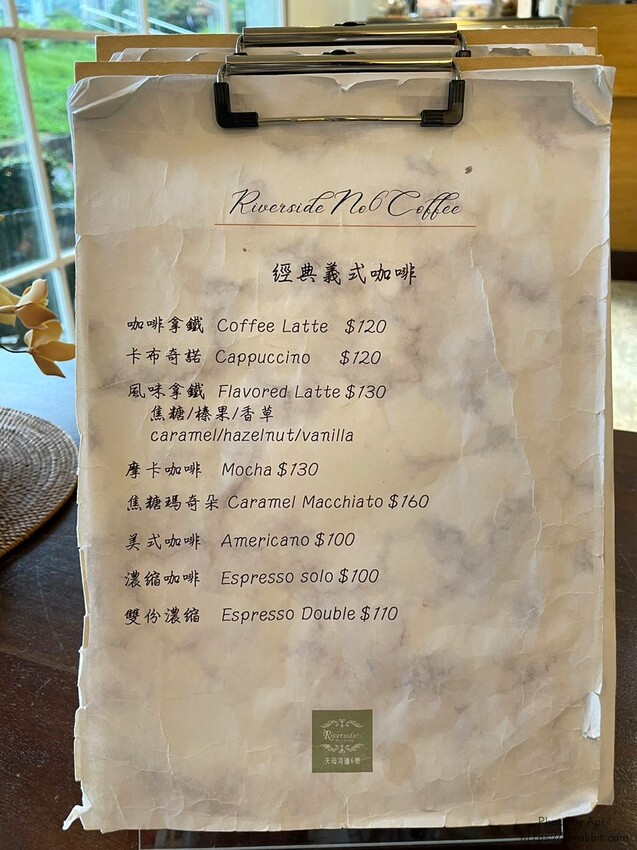 Riverside No6 Coffee
經典義式咖啡
咖啡拿鐵 Coffee Latte $120
卡布奇諾 Cappuccino $120
風味拿鐵 Flavored Latte $130
焦糖/榛果/香草
caramel/hazelnut/vanilla
摩卡咖啡 Mocha $130
焦糖瑪奇朵 Caramel Macchiato $160
美式咖啡 Americano $100
濃縮咖啡 Espresso solo $100
雙份濃縮 Espresso Double $110
Riverside
天母河邊6號
April